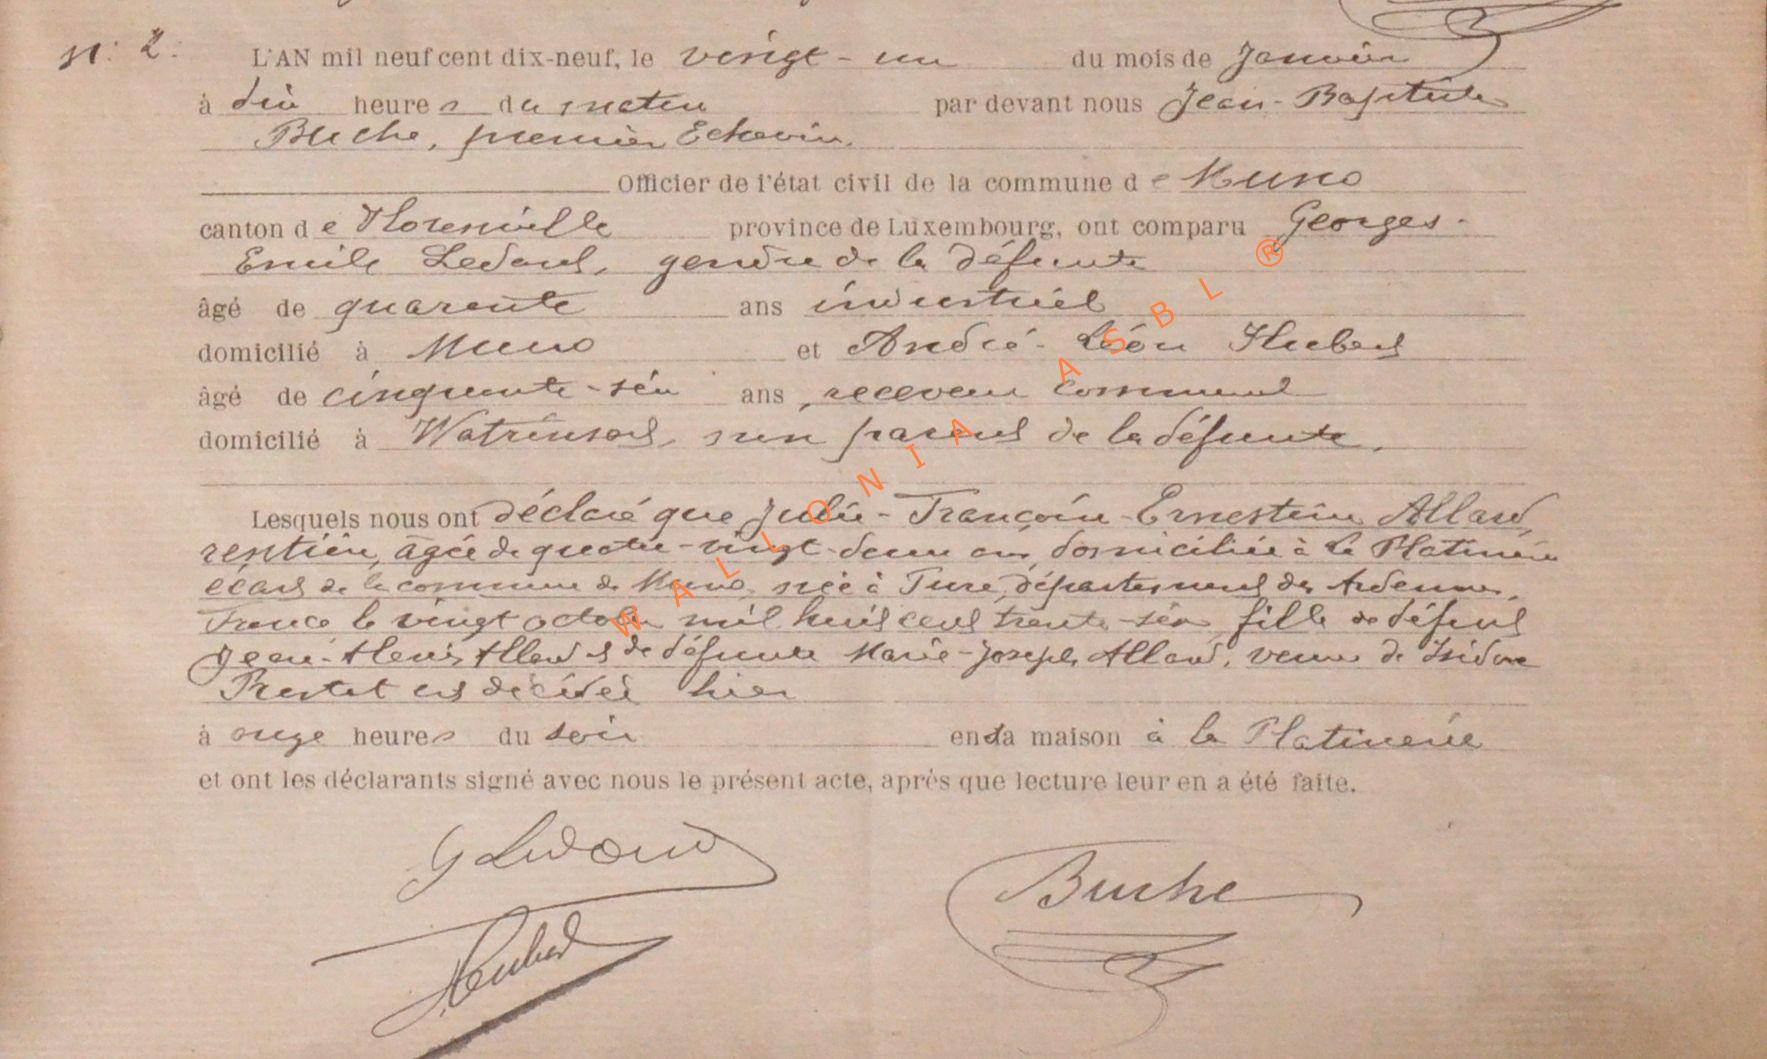 N° 2.
L'AN mil neuf cent dix-neuf, le vingt-un du mois de Janvier
à dix heures du matin par devant nous Jean-Baptiste
Buche, premier Echevin,
Officier de l'état civil de la commune de Muno
canton de Florenville province de Luxembourg, ont comparu Georges-
Emile Ledoux, gendre de la défunte
âgé de quarante ans industriel
domicilié à Muno et André-Léon Hubert
âgé de cinquante-six ans, receveur communal
domicilié à Watrinsart, non parent de la défunte,
Lesquels nous ont déclaré que Julie-Françoise-Ernestine Allard,
rentière, âgée de quatre-vingt-deux ans, domiciliée à la Platinerie
écart de la commune de Muno, née à Pure, département des Ardennes,
France le vingt octobre mil huit cent trente-six, fille de défunt
Jean-Henri Allard et de défunte Marie-Joseph Allard, veuve de Isidore
est décédée hier
à onze heures du soir en sa maison à la Platinerie
et ont les déclarants signé avec nous le présent acte, après que lecture leur en a été faite.
G Ledoux
Buche
Hubert
WALLONIA ASBL ®